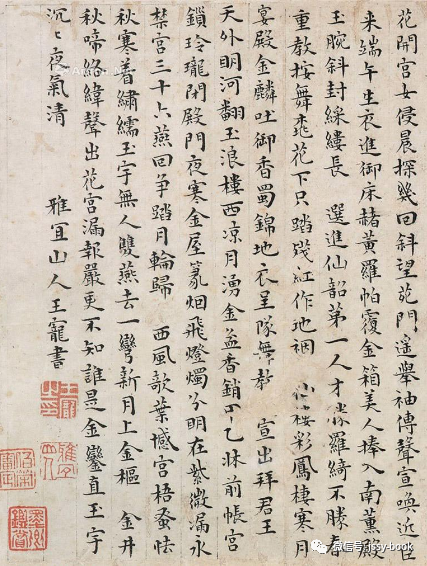 花開宮女侵晨探幾回斜望苑門遥舉袖傳聲宣喚近臣
来端午生衣進御床赭黃羅帕覆金箱美人捧入南薰殿
玉腕斜封綵縷長 選進仙韶第一人才勝羅綺不勝春
重教按舞桃花下只踏殘紅作地裀 仙樓彩鳳棲寒月
宴殿金麟吐御香蜀錦地衣呈隊舞教 宣出拜君王
天外明河翻玉浪樓西凉月湧金盆香銷甲乙牀前帳宮
鎖玲瓏閉殿門夜寒金屋篆烟飛燈燭分明在紫微漏永
禁宮三十六燕回争踏月輪歸 西風歌葉撼宮梧蚤怯
秋寒着繡繻玉宇無人雙燕去一彎新月上金樞 金井
秋啼絡緯聲出花宮漏報嚴更不知誰是金鑾直玉宇
沉〻夜氣清 雅宜山人王寵書
微信号: jssy-book